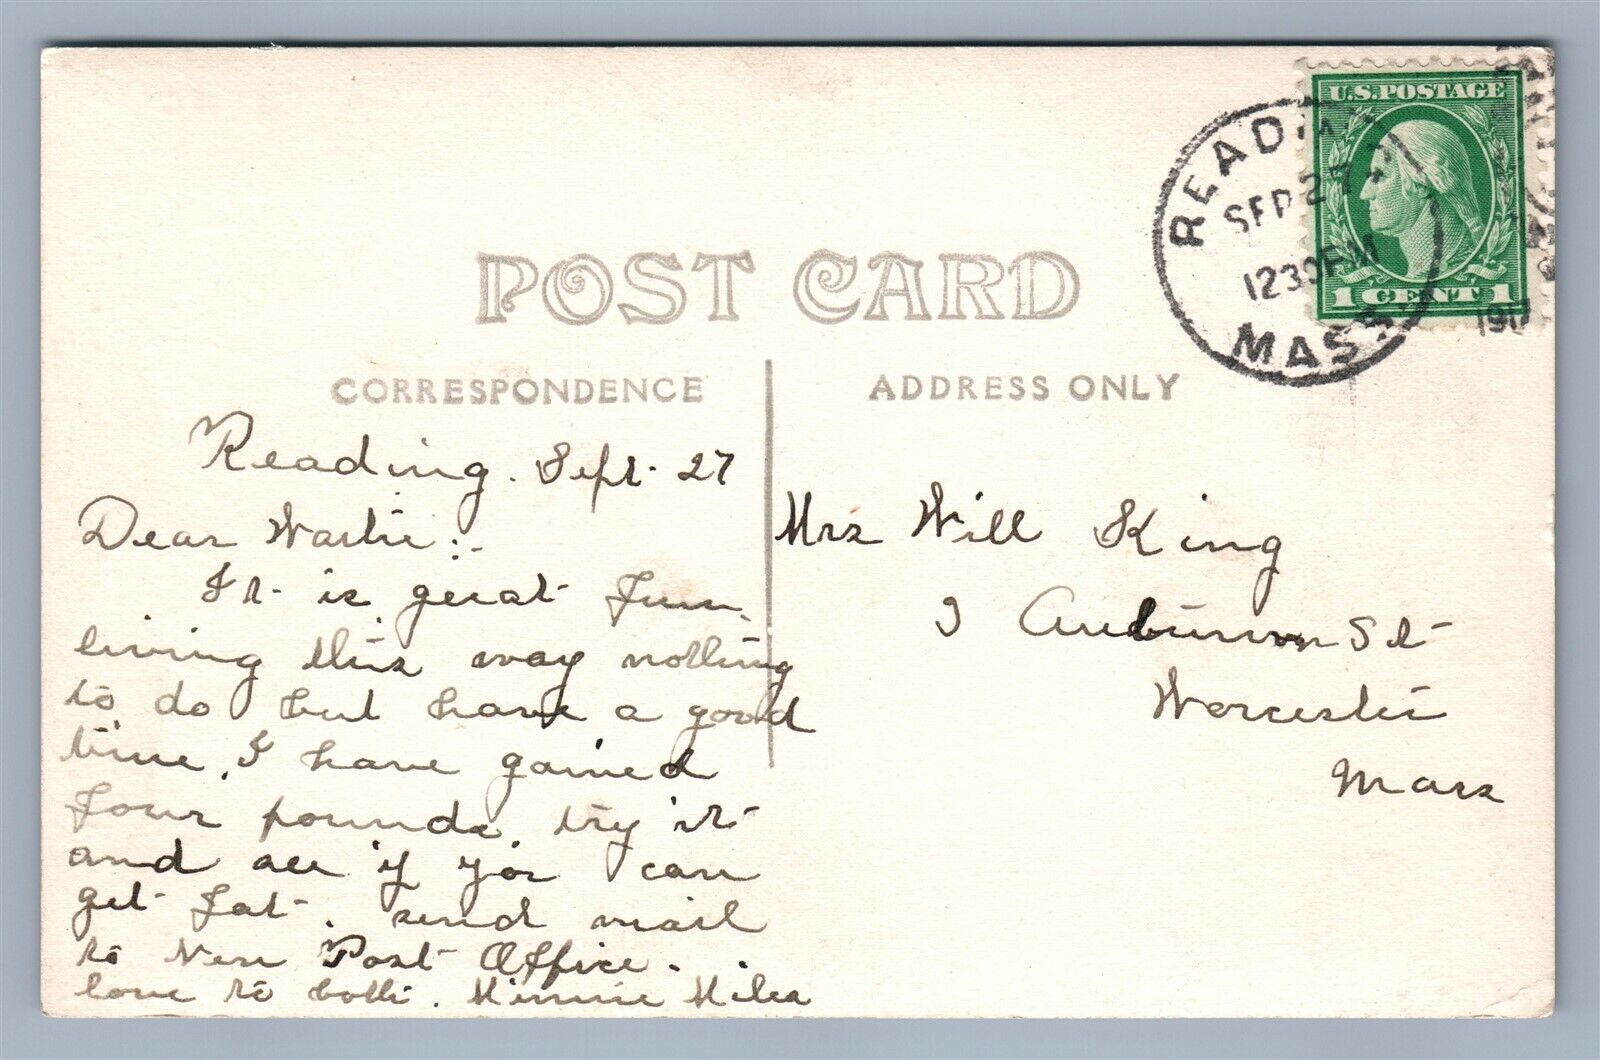 POST CARD
CORRESPONDENCE
ADDRESS ONLY
U.S. POSTAGE
1 CENT 1
READING
SEP 27
12 30 PM
MASS.
1917
Reading. Sept. 27
Dear
It is great fun
living this way nothing
to do but have a good
time. I have gained
four pounds try it
and see if you can
get fat. send mail
to New Post Office.
love to both. Minnie Miles
Mrs Will King
Auburn St
Worcester
Mass